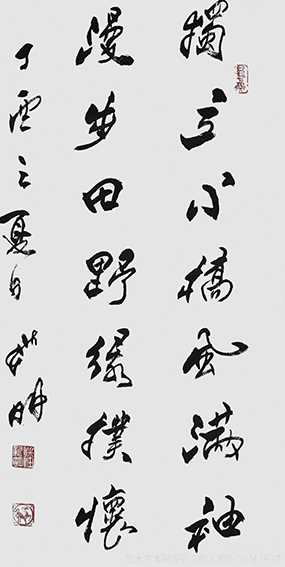 獨立小橋風滿袖
漫步田野綠撲懷
丁酉之夏月